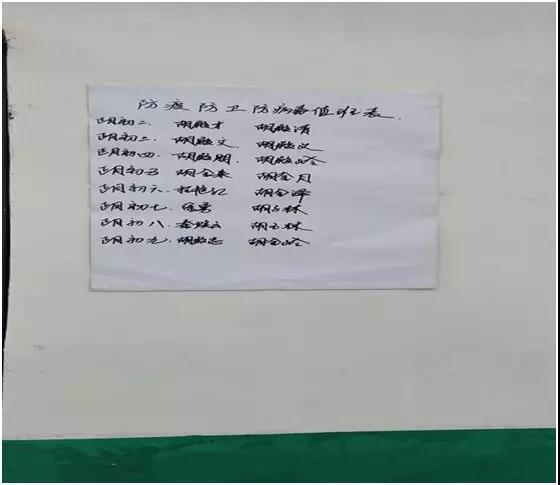 防疫防卫防病毒值班表.
正月初二. 胡殿才 胡殿清
正月初三. 胡殿文. 胡殿义
正月初四. 胡殿朋. 胡殿岭
正月初五 胡金来 胡金月
正月初六. 胡金泽
正月初七. 徐勇 胡玉林
正月初八. 胡玉林
正月初九. 胡殿志 胡金岭